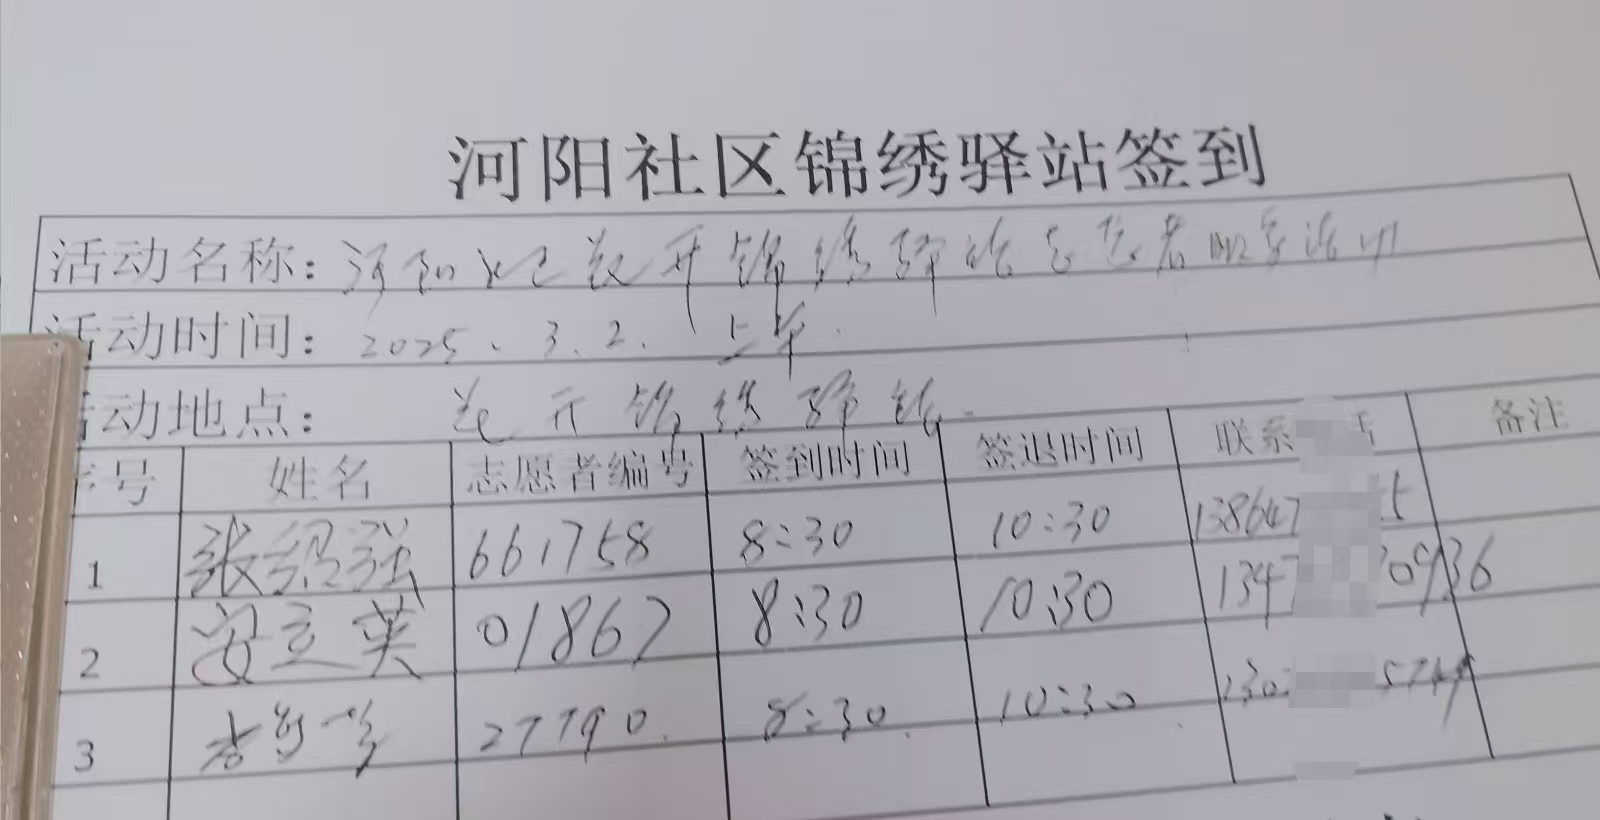 河阳社区锦绣驿站签到
活动名称：河阳社区花开锦绣驿站志愿者服务活动
活动时间：2025.3.2.上午.
活动地点：花开锦绣驿站
序号 姓名 志愿者编号 签到时间 签退时间 联系 话 备注
1 张绍强 661758 8:30 10:30 138647 5
2 安立英 01867 8:30 10:30 1347 30936
3 27790. 8:30. 10:30 130 5749